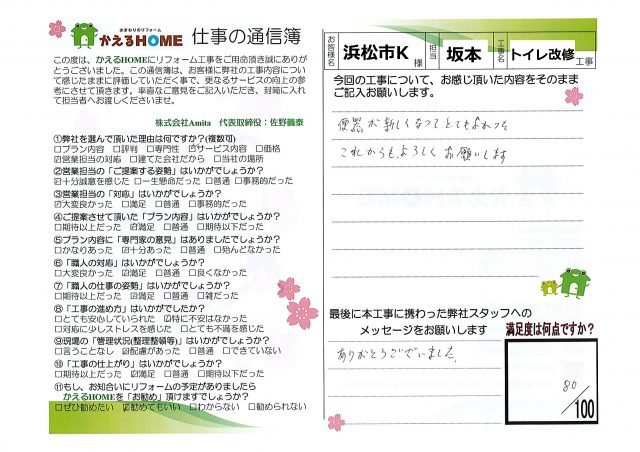 水まわりのリフォーム
かえるHOME 仕事の通信簿
この度は、かえるHOMEにリフォーム工事をご用命頂き誠にありが
とうございました。この通信簿は、お客様に弊社の工事内容につい
て感じたままに評価していただく事で、更なるサービスの向上の参
考にさせて頂きます。率直なご意見をご記入いただき、封筒に入れ
て担当者へお渡しくださいませ。
株式会社Amita 代表取締役：佐野義泰
①弊社を選んで頂いた理由は何ですか?(複数可)
□プラン内容 □評判 □専門性 ☑サービス内容 □価格
☑営業担当の対応 □建てた会社だから □当社の場所
②営業担当の「ご提案する姿勢」はいかがでしょうか?
☑十分誠意を感じた □一生懸命だった □普通 □事務的だった
③営業担当の「対応」はいかがでしょうか?
☑大変良かった □満足 □普通 □事務的だった
④ご提案させて頂いた「プラン内容」はいかがでしょうか?
□期待以上だった ☑満足 □普通 □期待以下だった
⑤プラン内容に「専門家の意見」はありましたでしょうか?
□かなりあった ☑十分あった □普通 □殆んどなかった
⑥「職人の対応」はいかがでしょうか?
□大変良かった ☑満足 □普通 □良くなかった
⑦「職人の仕事の姿勢」はいかがでしょうか?
□期待以上だった ☑満足 □普通 □雑だった
⑧「工事の進め方」はいかがでしたか?
□とても安心していられた ☑特に不安はなかった
□対応に少しストレスを感じた □とても不満を感じた
⑨現場の「管理状況(整理整頓等)」はいかがでしょうか?
□言うことなし ☑配慮があった □普通 □できていない
⑩「工事の仕上がり」はいかがでしょうか?
□期待以上だった ☑満足 □普通 □期待以下だった
⑪もし、お知合いにリフォームの予定がありましたら
かえるHOMEを「お勧め」頂けますでしょうか?
□ぜひ勧めたい ☑勧めてもいい □わからない □勧められない
お客様名 浜松市K 様 担当 坂本 工事名 トイレ改修 工事
今回の工事について、お感じ頂いた内容をそのまま
ご記入お願いします。
便器が新しくなってとてもよかった
これからもよろしくお願いします
最後に本工事に携わった弊社スタッフへの
メッセージをお願いします
ありがとうございました。
満足度は何点ですか?
80
/100